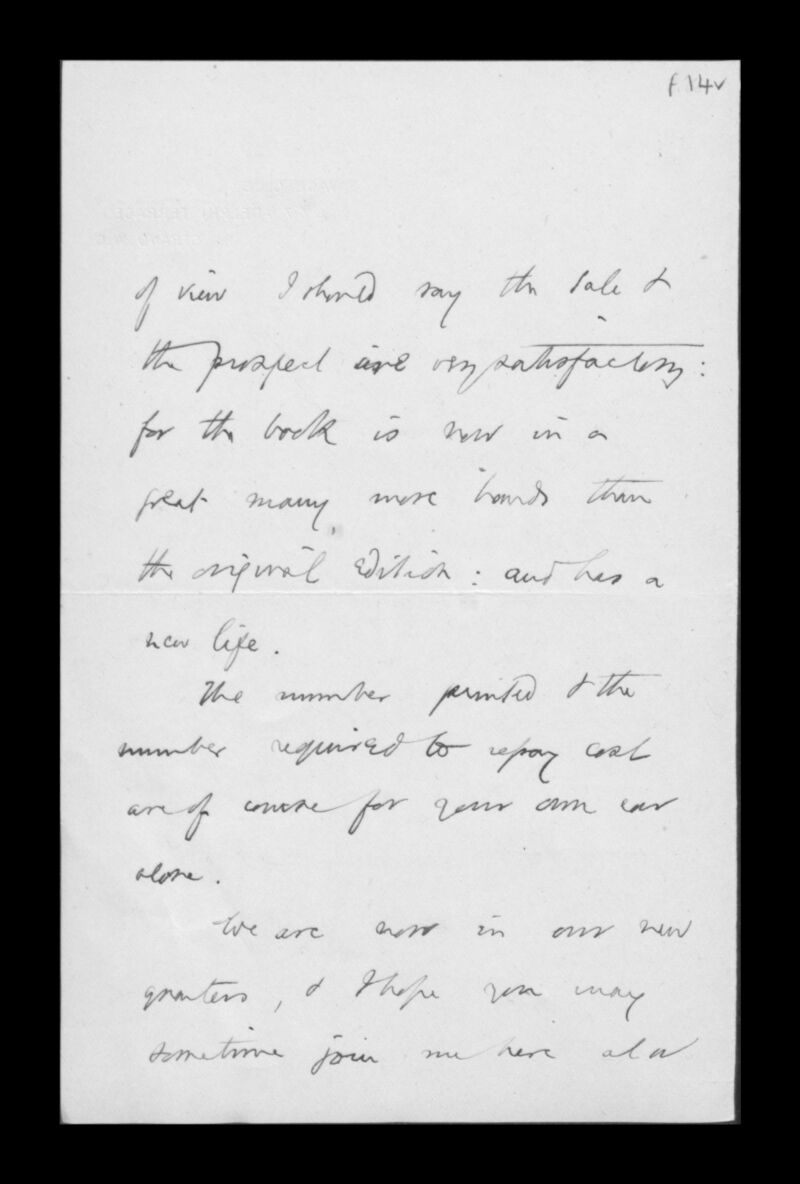 f.14v
of view I should say the sale &
the prospect are very satisfactory:
for the book is now in a
great many more hands than
the original edition: and has a
new life.
The number printed & the
number required to repay cost
are of course for your own ear
alone.
We are now in our new
quarters, & I hope you may
sometime join me here at a